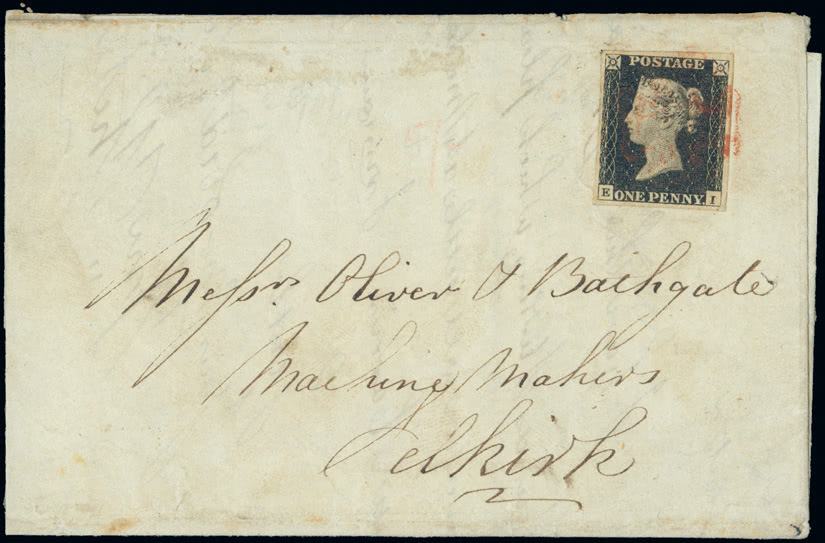 POSTAGE
E ONE PENNY I
Messrs Oliver & Bathgate
Maching Makers
Selkirk